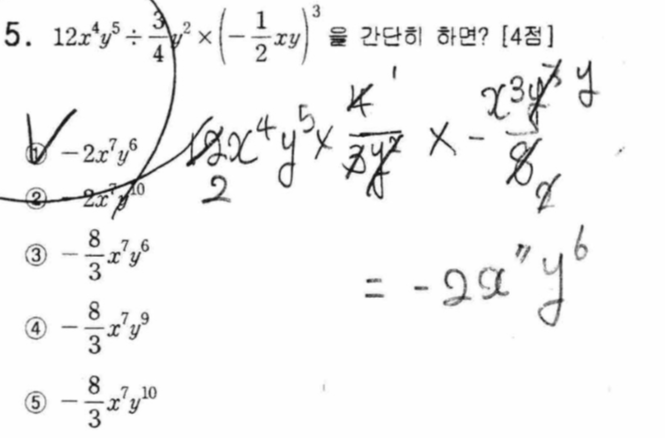 5. 12x⁴y⁵ ÷ 3/4 y² × (−1/2 xy)³ 을 간단히 하면? [4점]
① −2x⁷y⁶
② −2x⁷y¹⁰
③ −8/3 x⁷y⁶
④ −8/3 x⁷y⁹
⑤ −8/3 x⁷y¹⁰
12x⁴y⁵ × 4/3y² × − x³y³/8
2 1 y 2
= −2x⁷y⁶